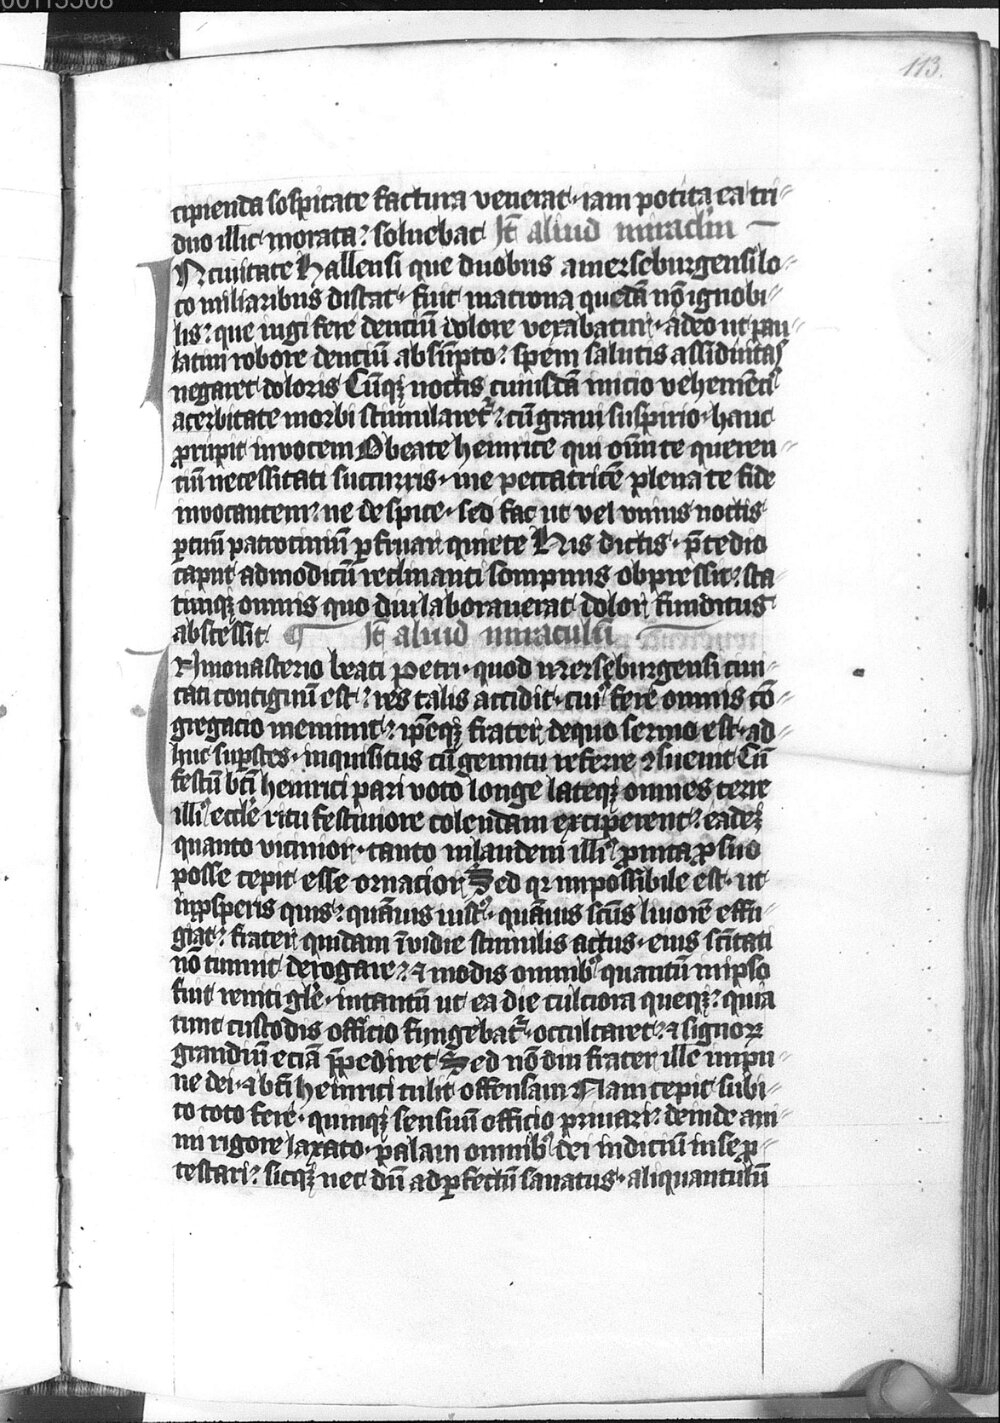 00113308
113.
cipienda sospitate factura venerat· iam potita ea tri⸗
duo illic morata? soluebat Itē aliud miraclm
IN ciuitate Hallensi que duobus a merseburgensi lo⸗
co miliaribus distat· fuit matrona quedā nō ignobi⸗
lis? que iugi fere denciū dolore vexabatur· adeo ut pau⸗
latim robore denciū absūpto? spem salutis assiduitas
negaret doloris Cūqꝫ noctis cuiusdā inicio vehemēcꝰ
acerbitate morbi stimularetʳ? cū graui suspirio· hanc
ꝓrupit in vocem O beate heinrice qui om̄i te queren⸗
ciū necessitati succurris· me peccatricē plena te fide
inuocantem? ne despice· sed fac ut vel vnius noctis
ꝑ tuū patrociniū ꝑfruar quiete His dictis· p̄ tedio
caput ad modicū reclinanti sompnus obpressit? sta⸗
timqꝫ omnis quo diu laborauerat dolor funditus
abscessit Itē aliud miraculū
IN monasterio beati Petri· quod merseburgensi ciui⸗
tati contiguū est? res talis accidit· cuiꝰ fere omnis cō⸗
gregacio meminit? ip̄eqꝫ frater de quo sermo est· ad⸗
huc suꝑstes· inquisitus cū gemitu referre ꝯsueuit Cū
festū bt̄i heinrici pari voto longe lateqꝫ omnes terre
illiꝰ eccl̄e ritu festiuiore colendam exciperent? eadeꝫ
quanto vicinior· tanto in laudem illiꝰ ꝓ uita ꝓ suo
posse cepit esse ornacior Sed qr impossibile est· ut
in ꝓsperis quis? quāuis iustꝰ· quāuis sc̄us liuorē effu⸗
giat? frater quidam īuidie stimulis actus· eius sc̄itati
nō timuit derogare? ⁊ modis omnibꝰ quantū in ipso
fuit reniti gl̄e· in tantū ut ea die culciora queqꝫ? quia
tunc custodis officio fungebatʳ· occultaret? ⁊ signoꝝ
grandiū eciā īpediret Sed nō diu frater ille impu⸗
ne dei· ⁊ bt̄i heinrici tulit offensam Nam cepit subi⸗
to toto fere· quinqꝫ sensuū officio priuari? deinde ani⸗
mi rigore laxato· palam omnibꝰ dei iudiciū in se ꝓ⸗
testari? sicqꝫ nec dū ad ꝑfectū sanatus· aliquantulū